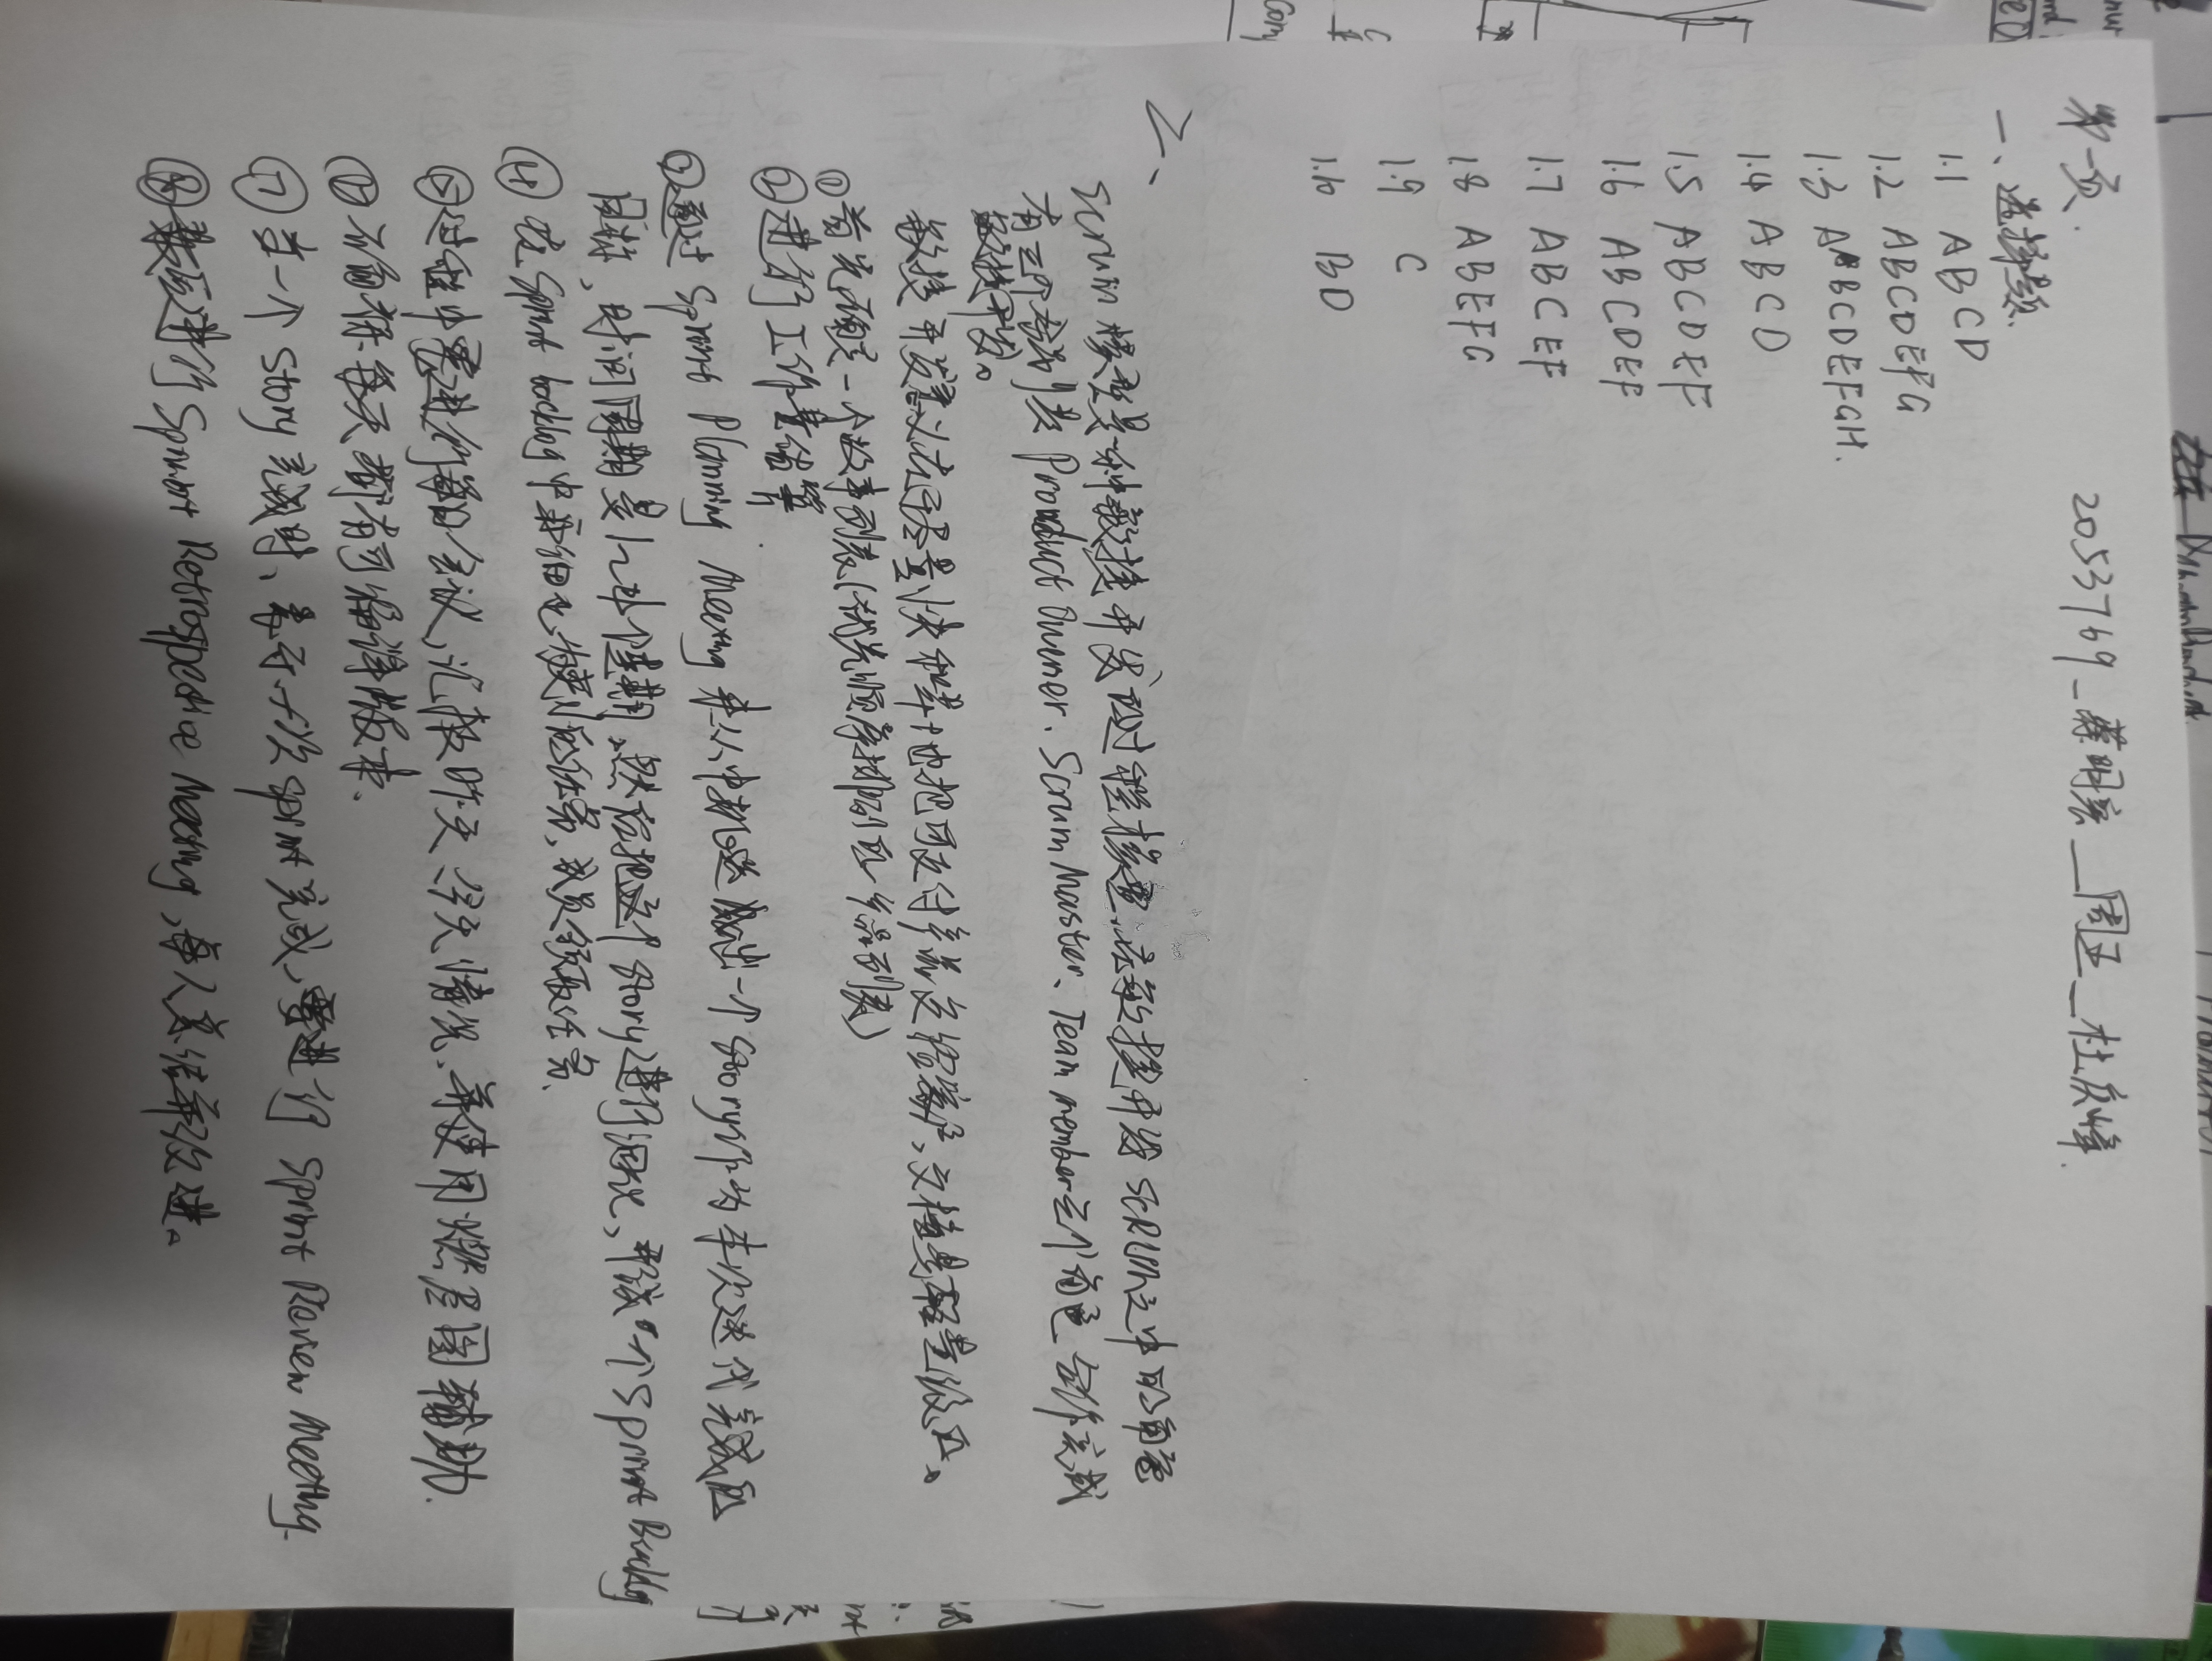 第一页. 2053769_蔡明宏__周五__杜庆峰.
一、选择题.
1.1 ABCD
1.2 ABCDEFG
1.3 ABCDEFGH.
1.4 ABCD
1.5 ABCDEF
1.6 ABCDEF
1.7 ABCEF
1.8 ABEFG
1.9 C
1.10 BD
二、
Scrum 模型是一种敏捷开发的过程模型,去敏捷开发 SCRUM之中的角色
有三个 Product Owner、Scrum Master、Team member三个角色 合作完成
敏捷开发。
敏捷开发 尽量快 地把可交付 给客户、文档是轻量级的。
①首先确定一个故事列表(优先顺序排列的 列表)
②进行工作量估算
③通过 Sprint Planning Meeting 来从中挑选 出一个Story作为本次迭代完成的
目标、时间周期是1~4个星期,然后把这个Story进行细化、形成一个Sprint Backlog
④ 在Sprint backlog中再细化,成员领取任务.
⑤过程中要进行每日会议,汇报昨天、今天情况、并使用燃尽图辅助.
⑥ 确保每天都有可编译版本.
⑦ 当一个Story完成时、表示一次Sprint完成,要进行 Sprint Review Meeting.
⑧最后进行Sprint Retrospective Meeting,每人总结并改进。